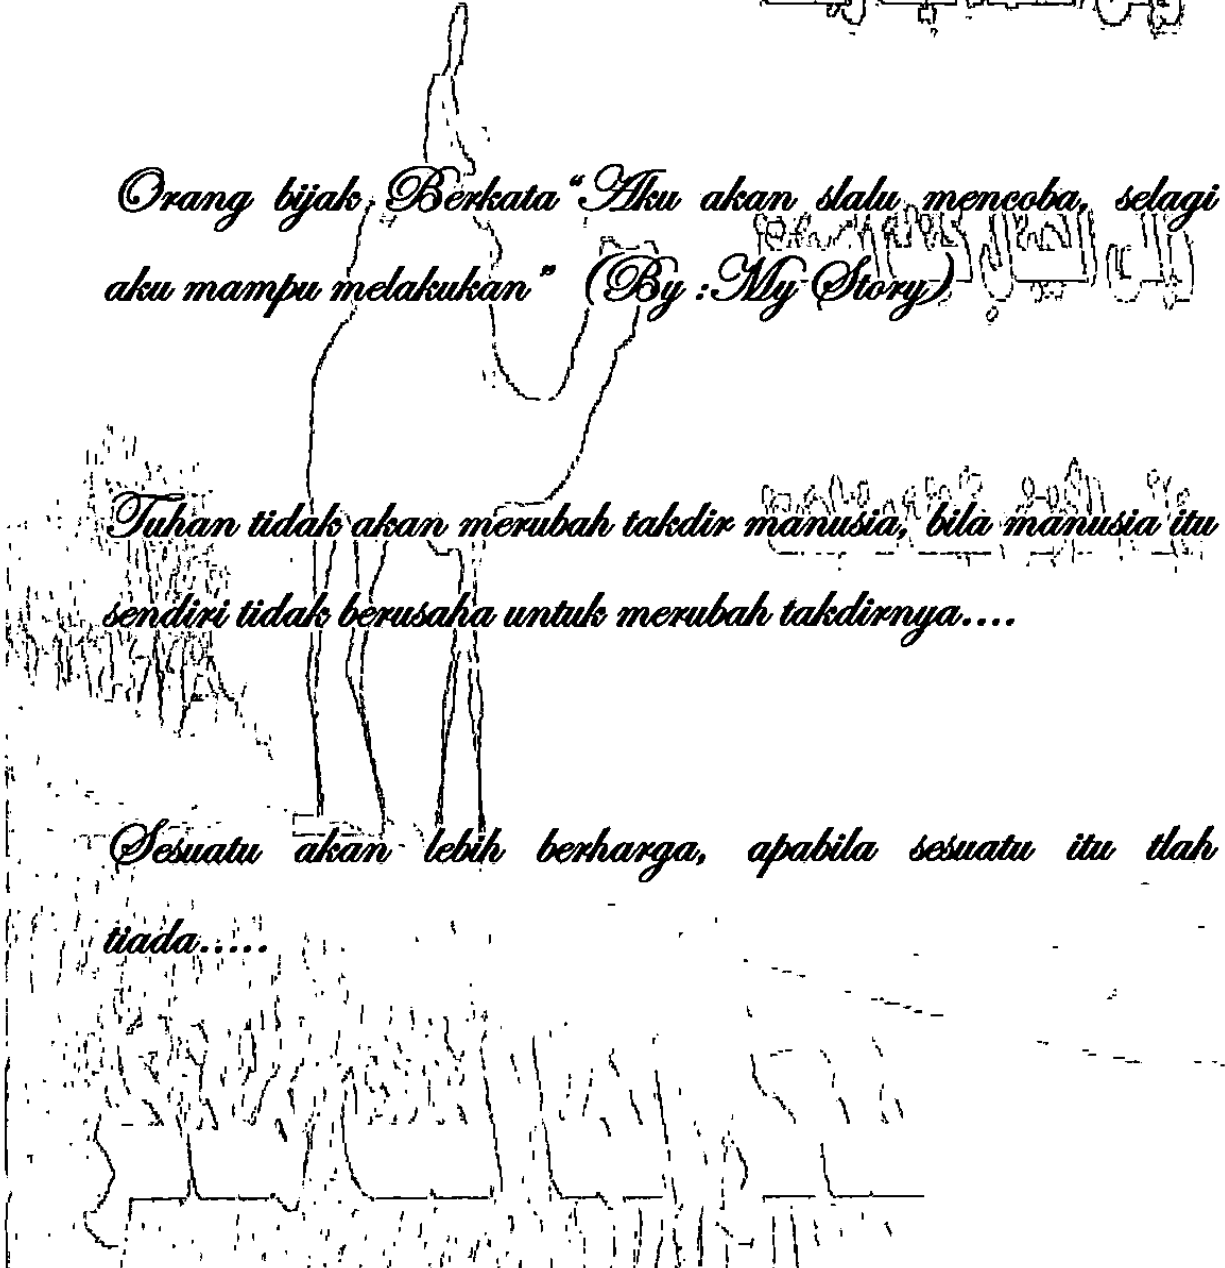 Orang bijak Berkata “Aku akan slalu mencoba, selagi
aku mampu melakukan” (By : My Story)
Tuhan tidak akan merubah takdir manusia, bila manusia itu
sendiri tidak berusaha untuk merubah takdirnya....
Sesuatu akan lebih berharga, apabila sesuatu itu tlah
tiada.....